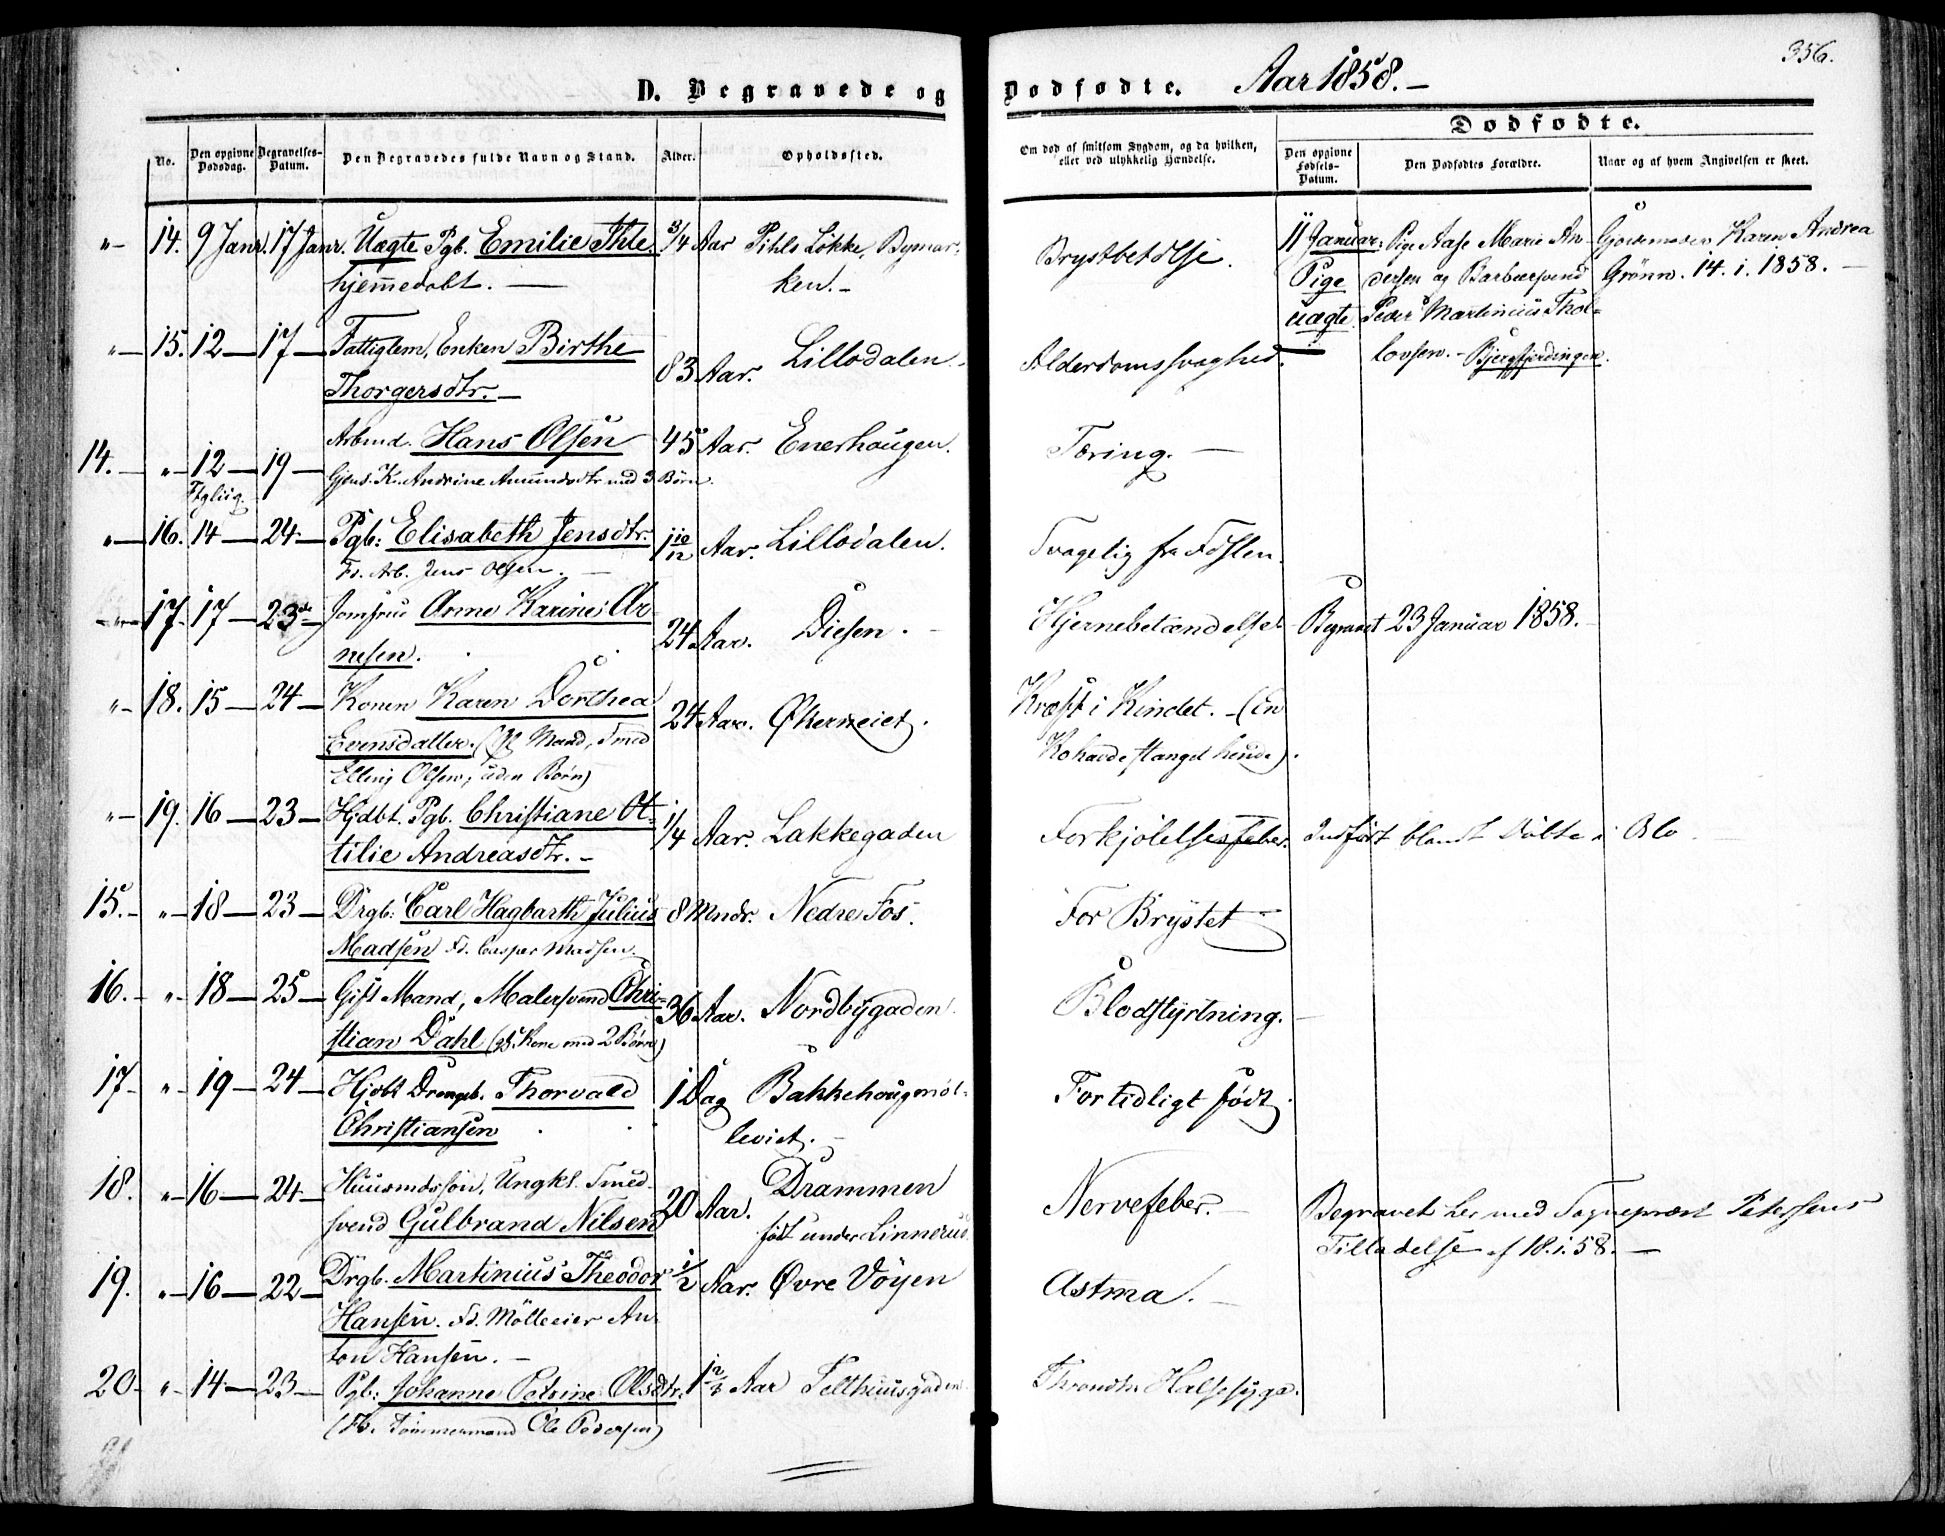 356.
D. Begravede og Dødfødte. Aar 1858. –
Dødfødte.
No. Den opgivne Dødsdag. Begravelses-Datum. Den Begravedes fulde Navn og Stand. Alder. Opholdssted. Om død af smitsom Sygdom, og da hvilken, eller ved ulykkelig Hændelse. Den opgivne Fødsels-Datum. Den Dødfødtes Forældre. Naar og af hvem Angivelsen er skeet.
„ – 14. 9 Janr. 17 Janr. Uægte Pgb. Emilie Ihle 3/4 Aar Pihls Løkke, Bymar-
hjemmedøbt. – ken. –
Brystbetændelse.
11 Januar Pige Aase Marie An- Gjordemoder Karen Andrea
Pige dersen og Barbeersvend Grønn. 14. 1. 1858. –
uægte Peder Martinius Thol-
lovsen. – Bjergfjerdingen.
„ – 15. 12 – 17 – Fattiglem, Enken Birthe 83 Aar. Lillodalen. Alderdomssvaghed.
Thorgersdtr. –
14. – „ – 12 – 19 – Arbmd. Hans Olsen 45 Aar. Enerhougen. Tæring. –
Gjens. K. Andrine Amundsdtr med 3 Børn.
„ – 16. 14 – 24 – Pgb: Elisabeth Jensdtr. 1 10/12 Aar. Lillodalen. Svagelig fra Fødslen.
Fd. Arb. Jens Olsen. –
17. 17 – 23de Jomfrue Anne Karine Ar- 24 Aar. Diesen. – Hjernebetændelse Begravet 23 Januar 1858. –
nesen.
„ – 18. 15 – 24 – Konen Karen Dorthea 24 Aar. Økerneiet. Kræft i Kindet. – (En
Evensdatter. (Gj. Mand, Smed Ko havde stanget hende).
Elling Olsen, uden Børn)
„ – 19. 16 – 23 – Hjdbt. Pgb. Christiane Ot- 1/4 Aar. Lakkegaden Forkjølelsesfeber. Indført blandt Døbte i Oslo
tilie Andreasdtr. –
15. – „ – 18 – 23 – Drgb: Carl Hagbarth Julius 8 Mndr. Nedre Fos. For Brystet
Madsen Fd. Casper Madsen.
16. – „ – 18 – 25 – Gift Mand, Malersvend Chri- 36 Aar. Nordbygaden. Blodstyrtning. –
stian Dahl (gs. Kone med 2 Børn)
17 – „ 19 – 24 – Hjdbt Drengeb. Thorvald 1 Dag Bakkehougmøl- For tidligt født.
Christiansen leriet. –
18. „ – 16 – 24 – Huusmdssøn, Ungkl. Smed- 20 Aar. Drammen Nervefeber. – Begravet her med Sognepræst Petersens
svend Gulbrand Nilsen født under Linnerud Tilladelse af 18. 1. 58. –
19. „ – 16 – 22 – Drgb. Martinius Theodor 1/2 Aar. Øvre Vøyen Astma. –
Hansen. Fd. Mølleeier An-
ton Hansen. –
20 – „ – 14 – 23 – Pgb: Johanne Petrine Olsdtr. 1 2/3 Aar Telthuusgaden Strændte Halsesyge.
(Fd. Tømmermand Ole Pedersen)